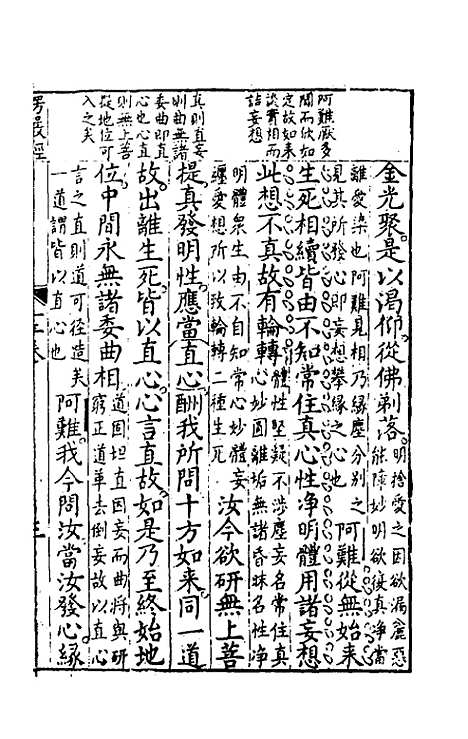 阿難厭多
聞而欣如
定故如來
談實相而
詰妄想
真則直妄
則曲無諸
委曲即直
心也心直
則無上菩
提地位可
入之矣
金光聚是以渴仰從佛剃落明捨愛之因欲漏麁惡
能障妙明欲後真淨當
離愛染也阿難見相乃縁塵分別之
見其所發心即妄想攀縁之心也阿難從無始来
生死相續皆由不知常住真心性淨明體用諸妄想
此想不真故有輪轉體性堅凝不涉塵妄名常住真
心妙圓離垢無諸昏昧名性淨
明體衆生由不自知常心妙體妄
纏愛想所以致輪轉二種生死汝今欲研無上菩
提真發明性應當直心酬我所問十方如来同一道
故出離生死皆以直心心言直故如是乃至終始地
位中間永無諸委曲相道固坦直因妄而曲將與研
窮正道革去倒妄故以直心
言之直則道可徑造矣
一道謂皆以直心也阿難我今問汝當汝發心緣
楞嚴經
卷
三